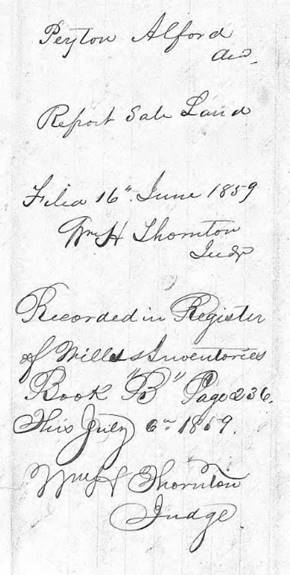 Peyton Alford
Report Sale Land
Filed 16" June 1859
Wm H Thornton
Judge
Recorded in Register
of Wills & Inventories
Book "B" Page 236.
This July 6th 1859.
Wm H Thornton
Judge